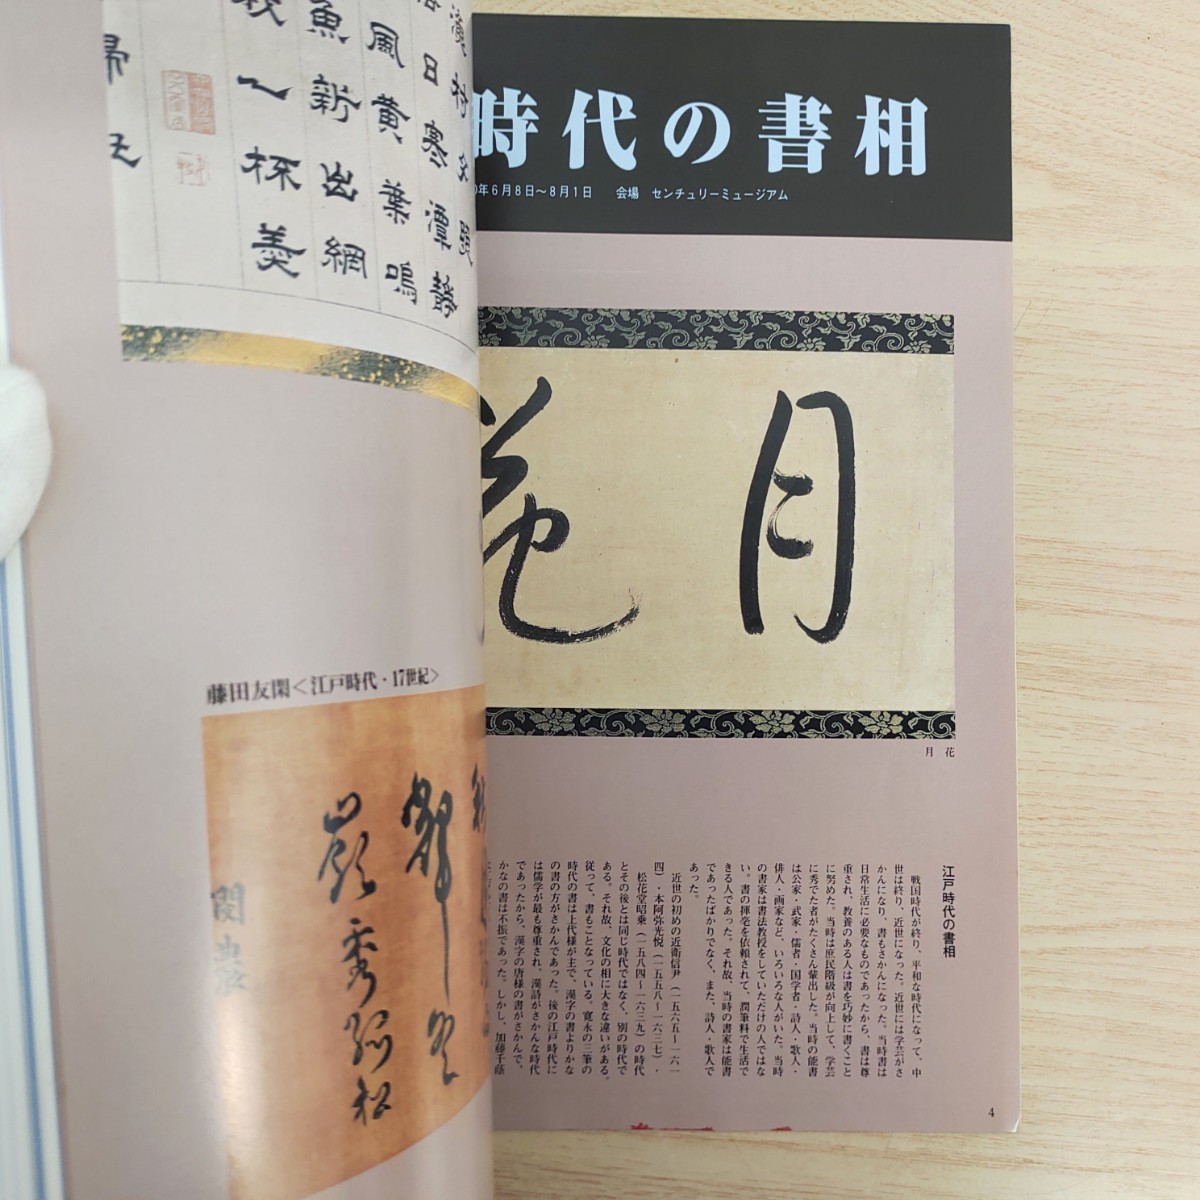 時代の書相
年6月8日〜8月1日　会場　センチュリーミュージアム
月
花
月　花
江戸時代の書相
戦国時代が終り、平和な時代になって、中
世は終り、近世になった。近世には学芸がさ
かんになり、書もさかんになった。当時書は
日常生活に必要なものであったから、書は尊
重され、教養のある人は書を巧妙に書くこと
に努めた。当時は庶民階級が向上して、学芸
に秀でた者がたくさん輩出した。当時の能書
は公家・武家・儒者・国学者・詩人・歌人・
俳人・画家など、いろいろな人がいた。当時
の書家は書法教授をしていただけの人ではな
い。書の揮毫を依頼されて、潤筆料で生活で
きる人であった。それ故、当時の書家は能書
であったばかりでなく、また、詩人・歌人で
あった。
近世の初めの近衛信尹（一五六五〜一六一
四）・本阿弥光悦（一五五八〜一六三七）・
松花堂昭乗（一五八四〜一六三九）の時代
とその後とは同じ時代ではなく、別の時代で
ある。それ故、文化の相に大きな違いがある。
従って、書もことなっている。寛永の三筆の
時代の書は上代様が主で、漢字の書よりかな
の書の方がさかんであった。後の江戸時代に
は儒学が最も尊重され、漢詩がさかんな時代
であったから、漢字の唐様の書がさかんで、
かなの書は不振であった。しかし、加藤千蔭
4
日寒潭静
風黄葉鳴
魚新出網
一杯羹
帰
藤田友閑＜江戸時代・17世紀＞
嶺秀孤松